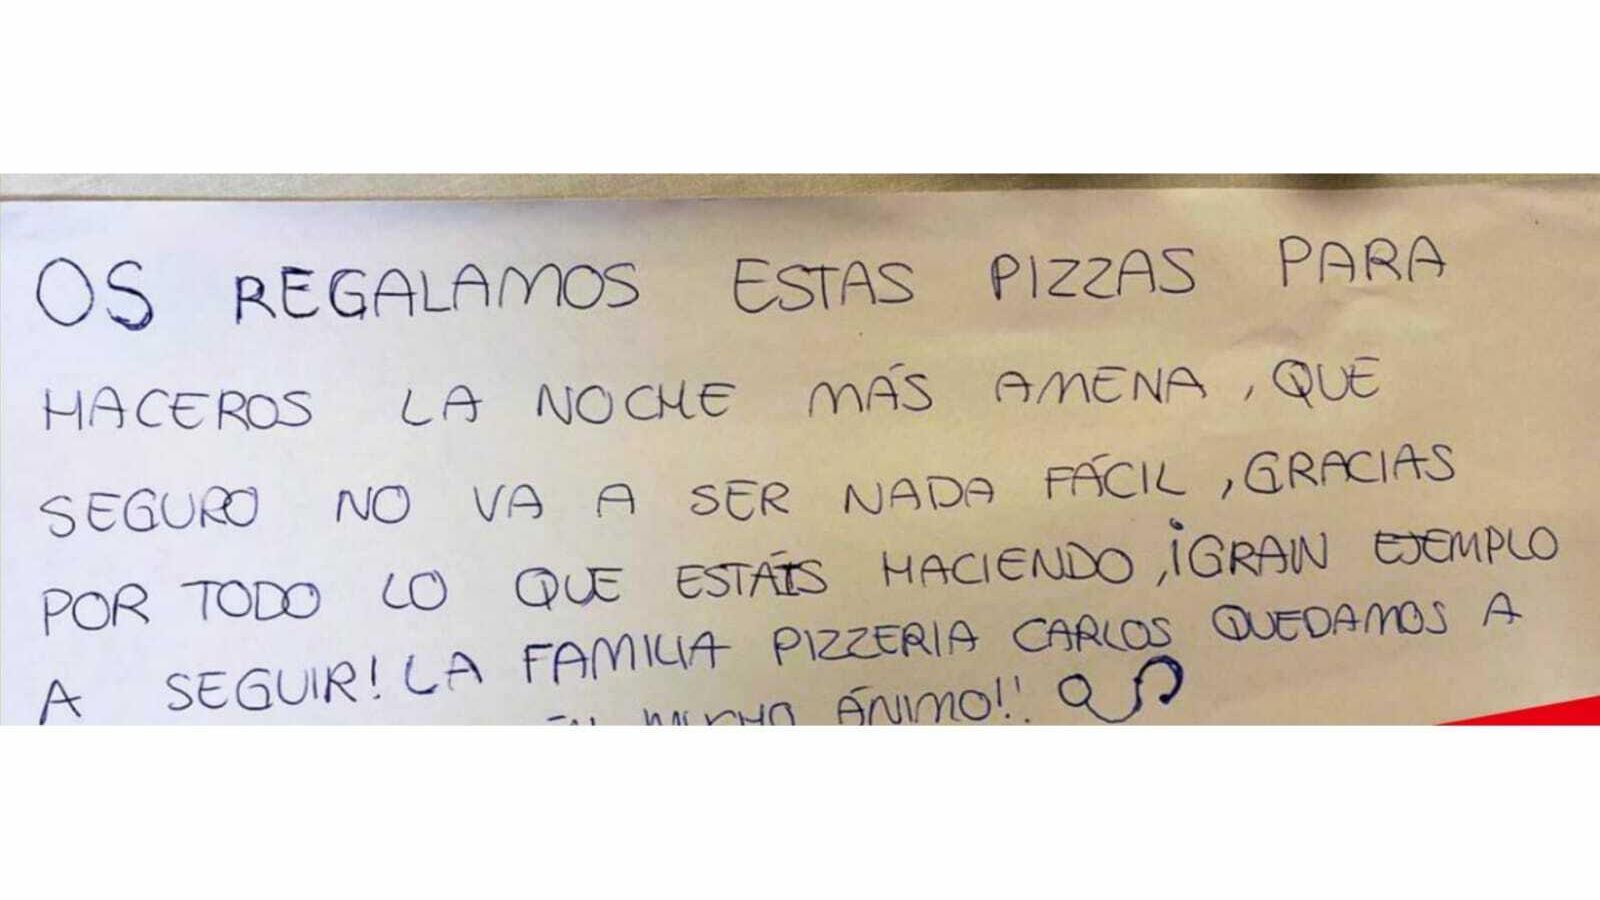 OS REGALAMOS ESTAS PIZZAS PARA
HACEROS LA NOCHE MÁS AMENA, QUE
SEGURO NO VA A SER NADA FÁCIL, GRACIAS
POR TODO LO QUE ESTÁIS HACIENDO, ¡GRAN EJEMPLO
A SEGUIR! LA FAMILIA PIZZERIA CARLOS QUEDAMOS A
MUCHO ÁNIMO!!